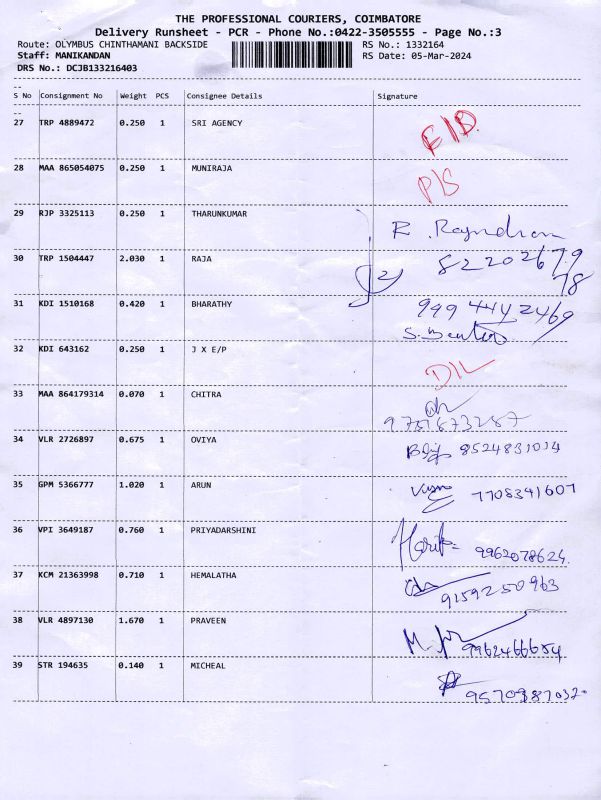 THE PROFESSIONAL COURIERS, COIMBATORE
Delivery Runsheet - PCR - Phone No.:0422-3505555 - Page No.:3
Route: OLYMBUS CHINTHAMANI BACKSIDE RS No.: 1332164
Staff: MANIKANDAN RS Date: 05-Mar-2024
DRS No.: DCJB133216403
S No Consignment No Weight PCS Consignee Details Signature
27 TRP 4889472 0.250 1 SRI AGENCY
28 MAA 865054075 0.250 1 MUNIRAJA P/S
29 RJP 3325113 0.250 1 THARUNKUMAR R.
30 TRP 1504447 2.030 1 RAJA 2 82202679
78
31 KDI 1510168 0.420 1 BHARATHY 999 4442469
32 KDI 643162 0.250 1 J X E/P D/L
33 MAA 864179314 0.070 1 CHITRA
34 VLR 2726897 0.675 1 OVIYA 8524831014
35 GPM 5366777 1.020 1 ARUN 7708341607
36 VPI 3649187 0.760 1 PRIYADARSHINI 9962078624
37 KCM 21363998 0.710 1 HEMALATHA 9159250963
38 VLR 4897130 1.670 1 PRAVEEN 9962466654
39 STR 194635 0.140 1 MICHEAL